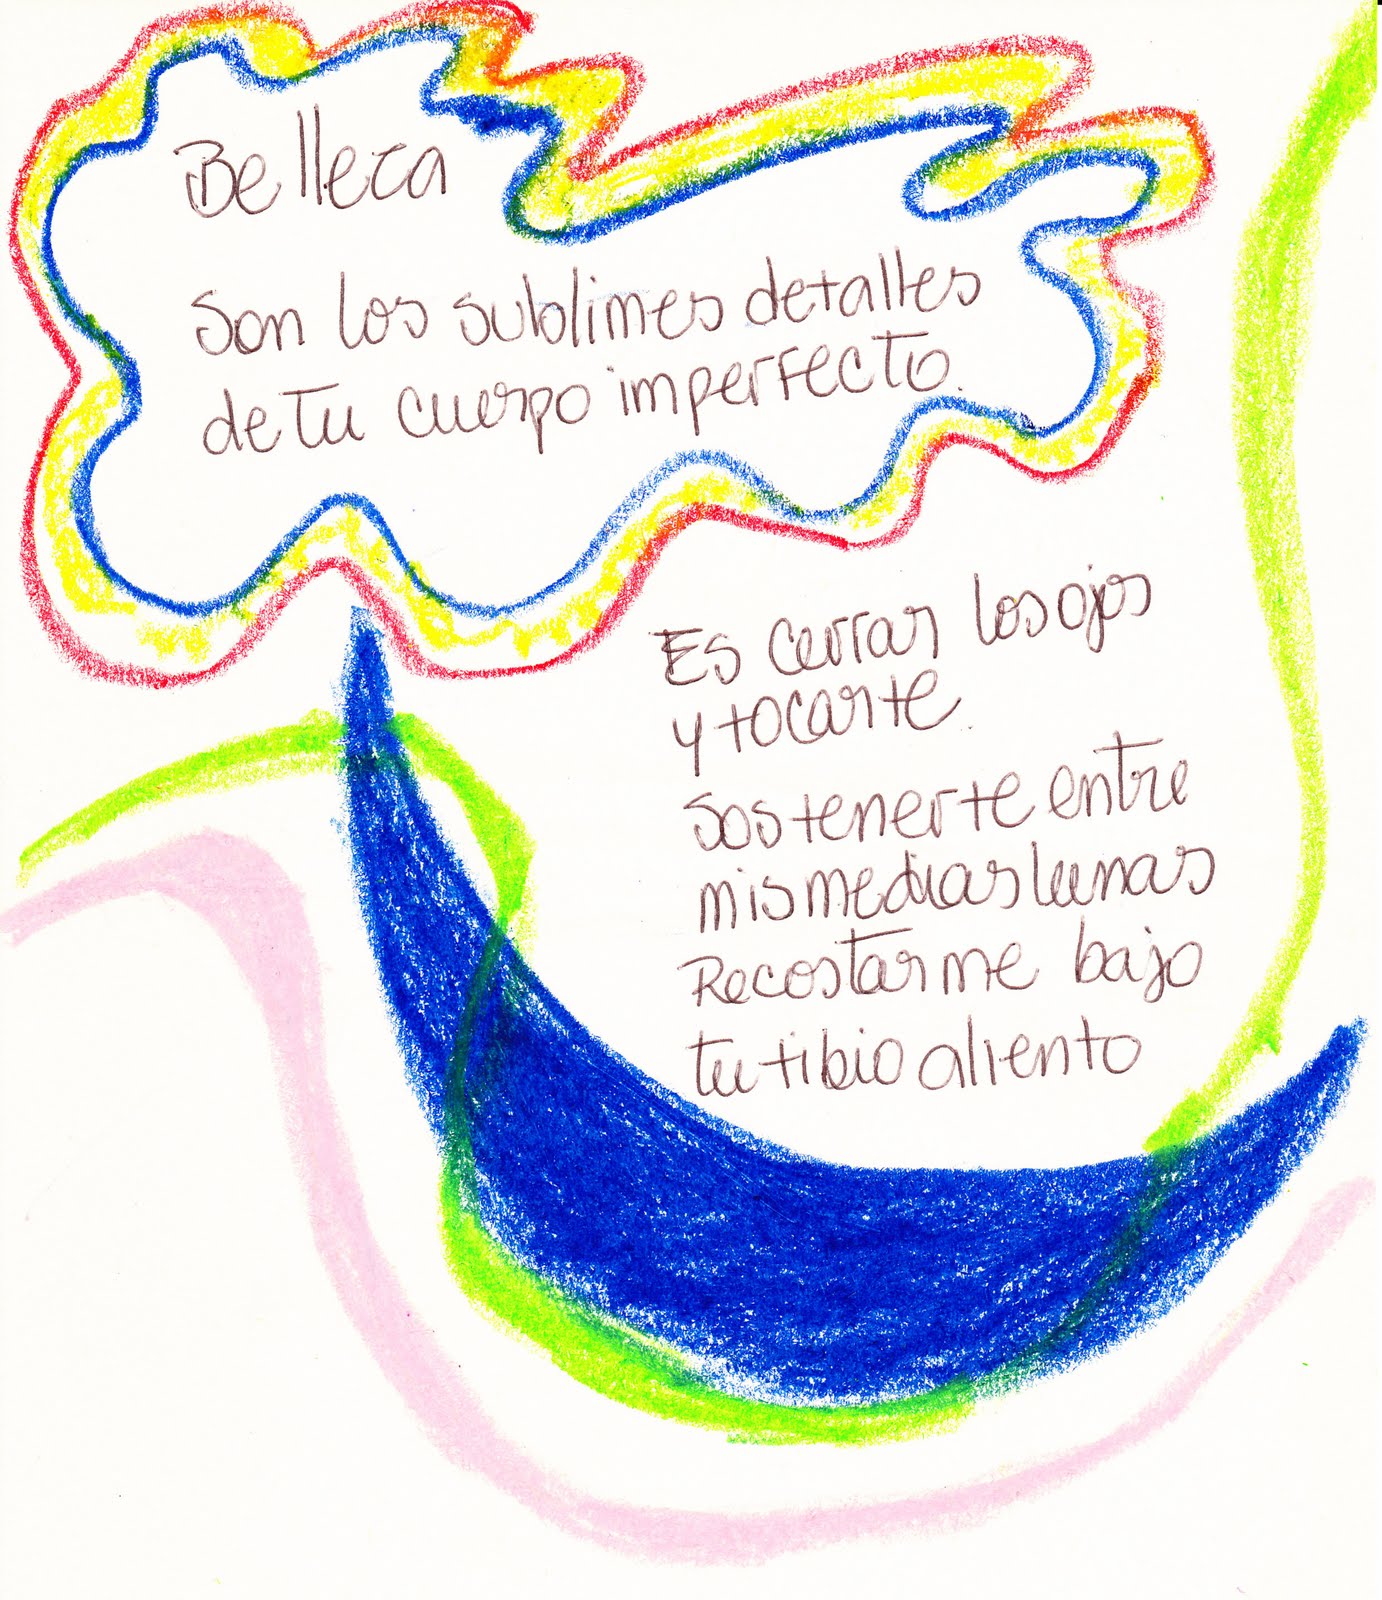 Belleza
Son los sublimes detalles
de tu cuerpo imperfecto.
Es cerrar los ojos
y tocarte.
Sostenerte entre
mis medias lunas
Recostarme bajo
tu tibio aliento